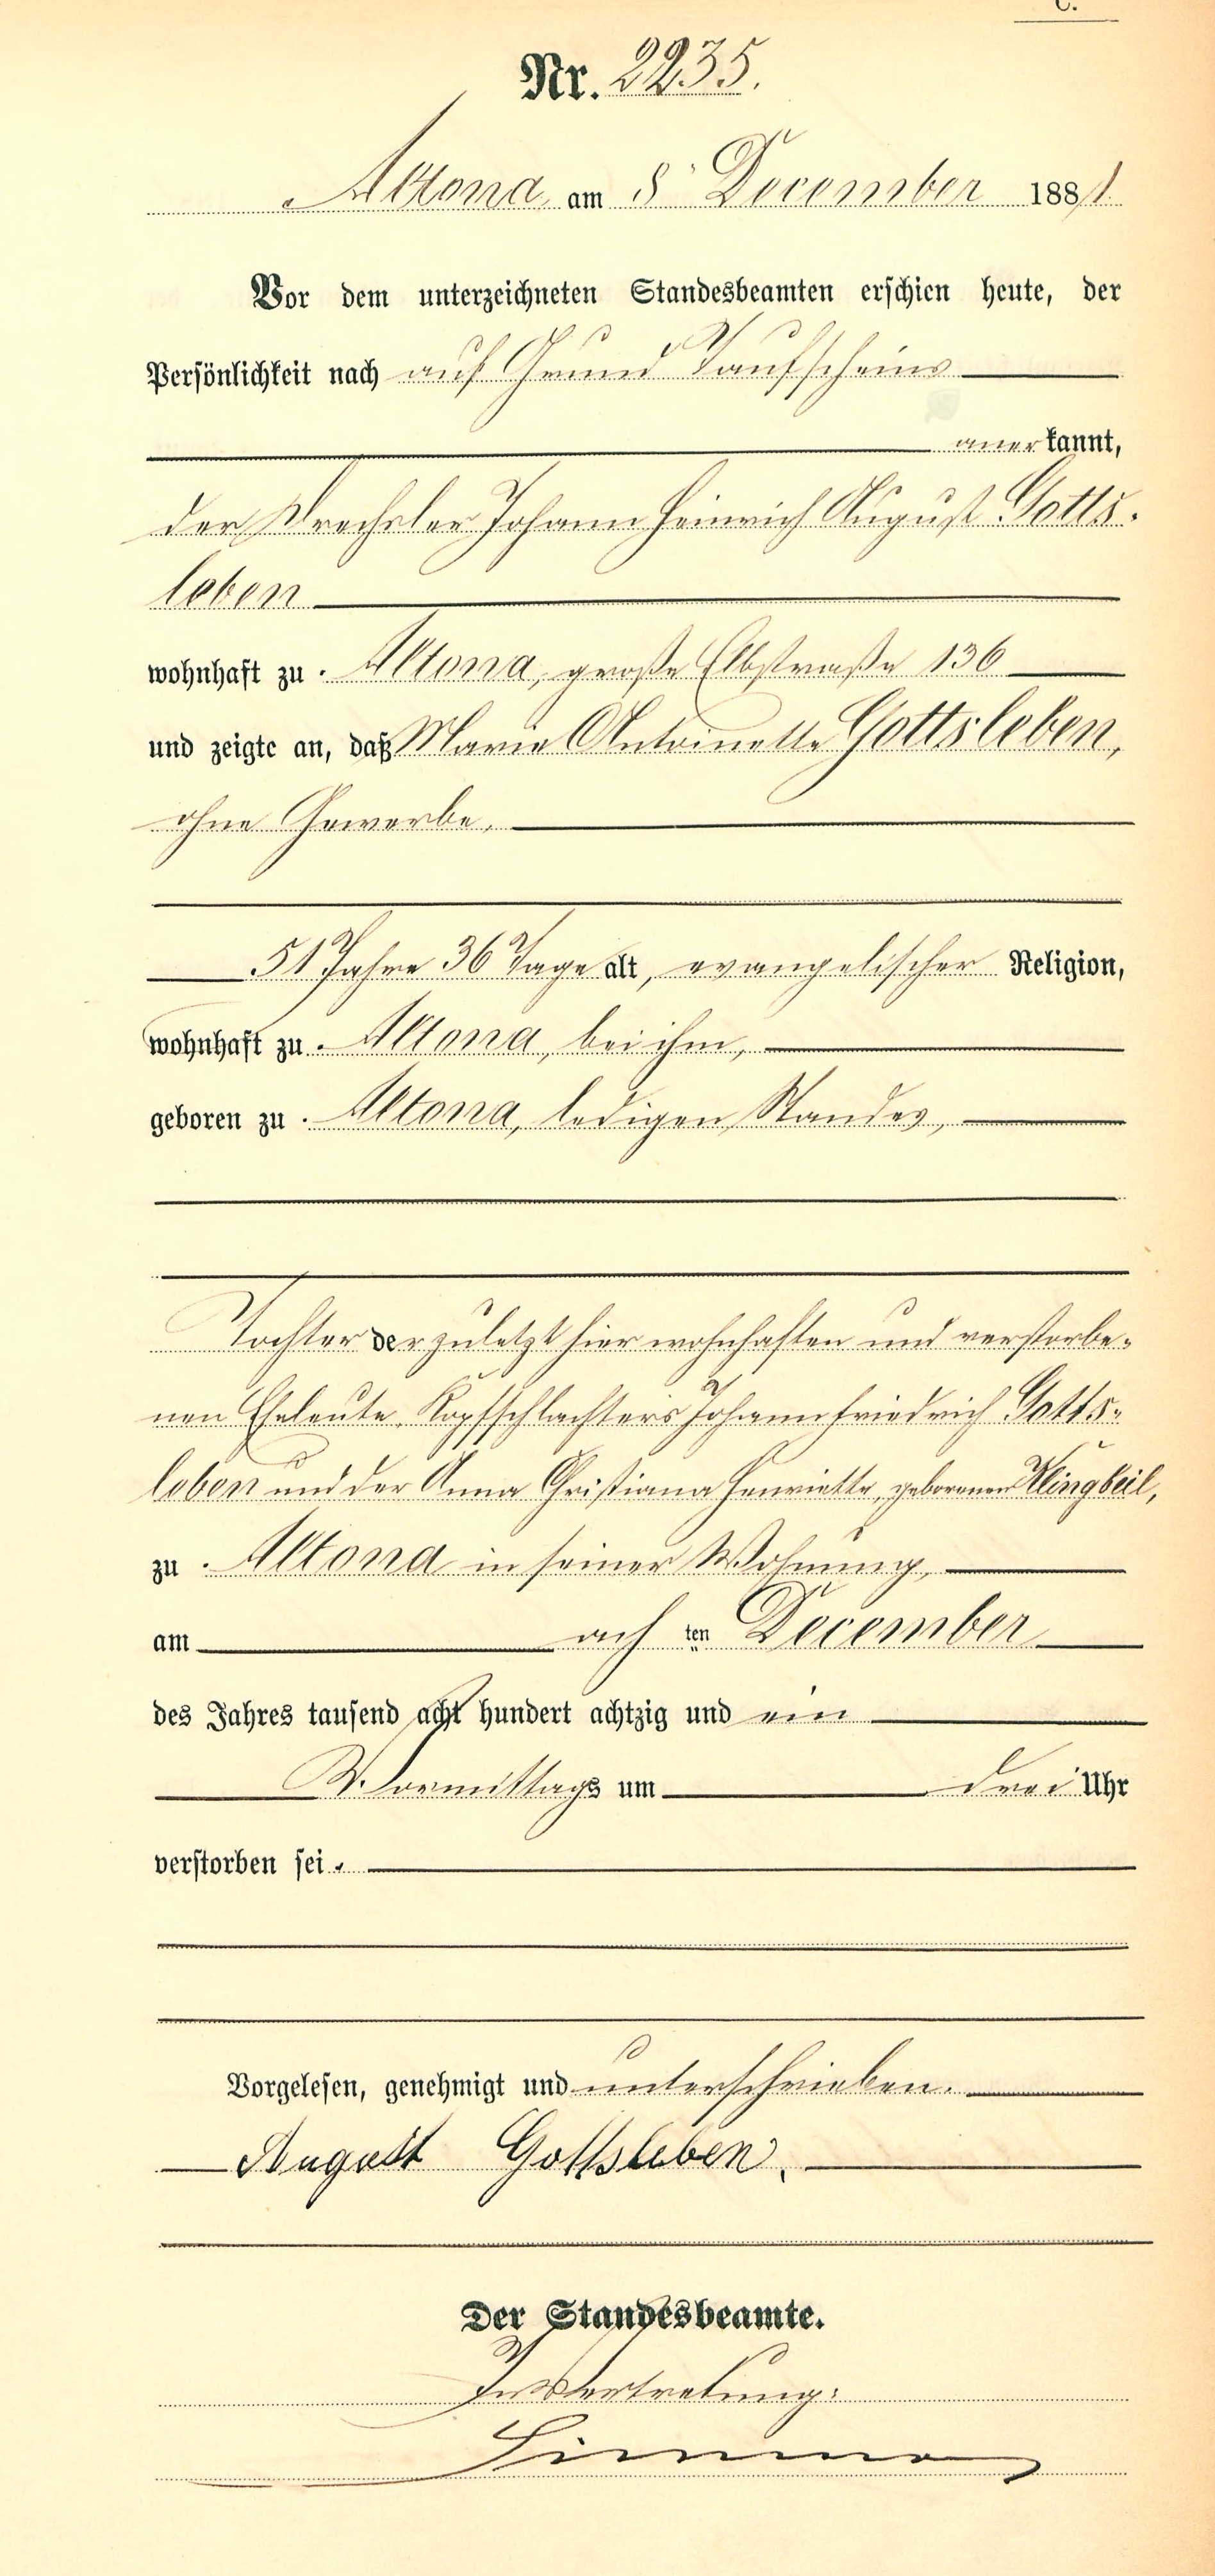 C.
Nr. 2235.
Altona, am 8. December 1881.
Vor dem unterzeichneten Standesbeamten erschien heute, der
Persönlichkeit nach auf Grund Taufscheins
anerkannt,
der Drechsler Johann Heinrich August Gotts-
leben
wohnhaft zu Altona, große Elbstraße 136
und zeigte an, daß Marie Antoinette Gottsleben,
ohne Gewerbe,
51 Jahre 36 Tage alt, evangelischer Religion,
wohnhaft zu Altona, bei ihm,
geboren zu Altona, ledigen Standes,
Tochter der zuletzt hier wohnhaften und verstorbe-
nen Eheleute, Kopfschlachters Johann Friedrich Gotts-
leben und der Anna Christiana Henriette, geborenen Klingbeil,
zu Altona in seiner Wohnung,
am achten December
des Jahres tausend acht hundert achtzig und ein
Vormittags um drei Uhr
verstorben sei.
Vorgelesen, genehmigt und unterschrieben.
August Gottsleben.
Der Standesbeamte.
In Vertretung: